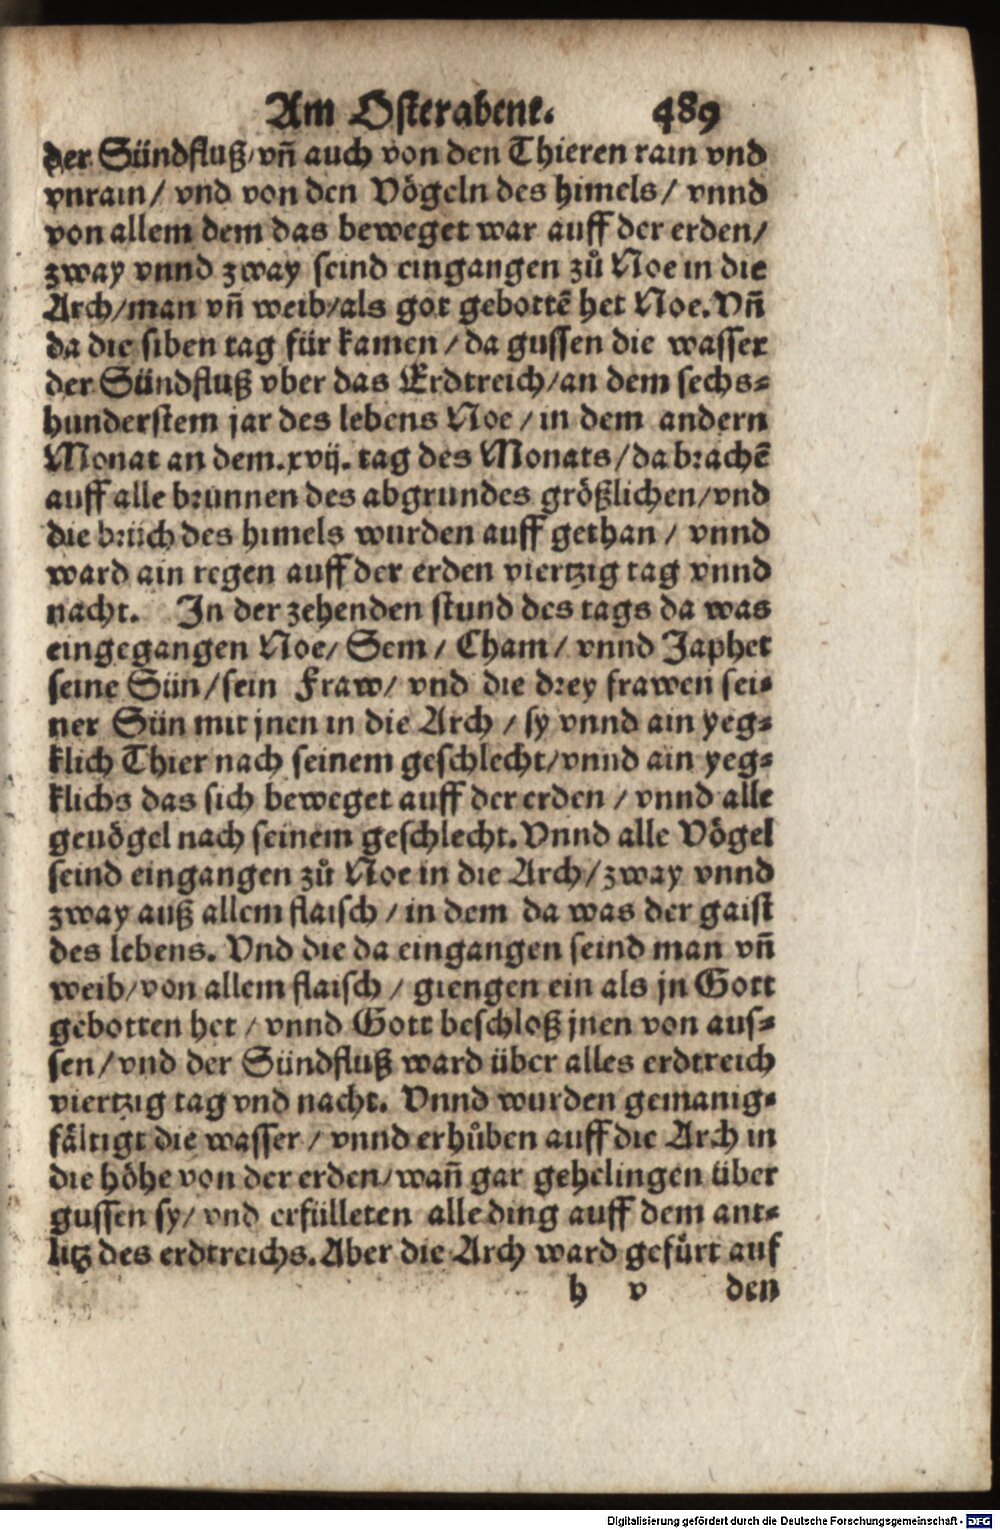 Am Osterabent. 489
der Sündfluß/vñ auch von den Thieren rain vnd
vnrain/ vnd von den Vögeln des himels/ vnnd
von allem dem das beweget war auff der erden/
zway vnnd zway seind eingangen zů Noe in die
Arch/man vñ weib/als got gebottē het Noe. Vñ
da die siben tag für kamen/da gussen die wasser
der Sündfluß vber das Erdtreich/an dem sechs⸗
hunderstem jar des lebens Noe/in dem andern
Monat an dem.xvij.tag des Monats/da brachē
auff alle brunnen des abgrundes größlichen/vnd
die brüch des himels wurden auff gethan/ vnnd
ward ain regen auff der erden viertzig tag vnnd
nacht. In der zehenden stund des tags da was
eingegangen Noe/ Sem/ Cham/ vnnd Japhet
seine Sün/sein Fraw/ vnd die drey frawen sei⸗
ner Sün mit jnen in die Arch/sy vnnd ain yeg⸗
klich Thier nach seinem geschlecht/vnnd ain yeg⸗
klichs das sich beweget auff der erden/vnnd alle
geuögel nach seinem geschlecht. Vnnd alle Vögel
seind eingangen zů Noe in die Arch/zway vnnd
zway auß allem flaisch/in dem da was der gaist
des lebens. Vnd die da eingangen seind man vñ
weib/von allem flaisch/ giengen ein als jn Gott
gebotten het/vnnd Gott beschloß jnen von aus⸗
sen/vnd der Sündfluß ward über alles erdtreich
viertzig tag vnd nacht. Vnnd wurden gemanig⸗
fältigt die wasser/vnnd erhůben auff die Arch in
die höhe von der erden/wañ gar gehelingen über
gussen sy/vnd erfülleten alle ding auff dem ant⸗
litz des erdtreichs. Aber die Arch ward gefürt auf
h v den
Digitalisierung gefördert durch die Deutsche Forschungsgemeinschaft - DFG